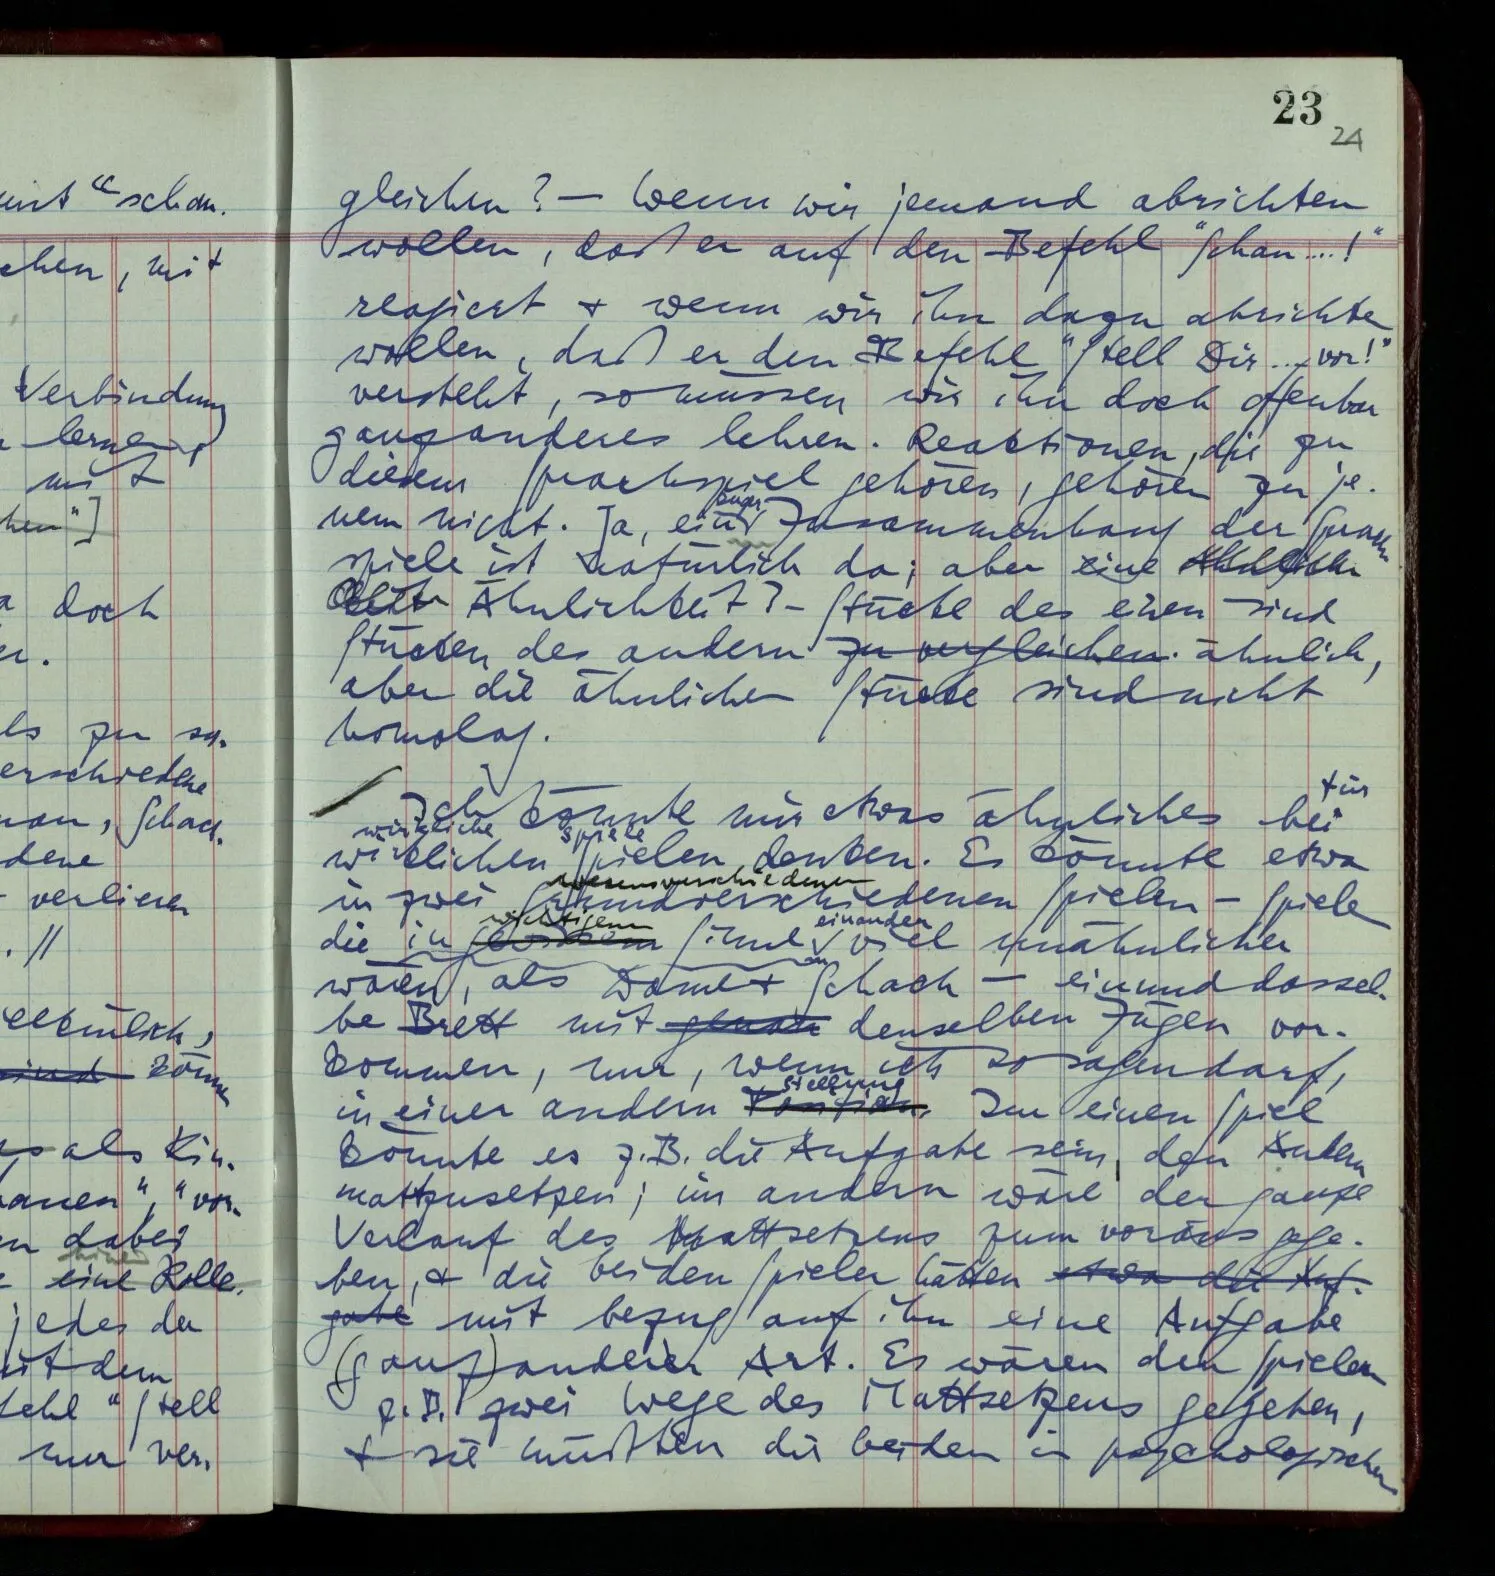 23
24
gleichen? — Wenn wir jemand abrichten
wollen, daß er auf den Befehl "Schau ...!"
reagiert & wenn wir ihn dazu abrichten
wollen, daß er den Befehl "Stell Dir ... vor!"
versteht, so müssen wir ihn doch offenbar
ganz anderes lehren. Reaktionen, die zu
diesem Sprachspiel gehören, gehören zu je-
nem nicht. Ja, ein enger Zusammenhang der Sprach-
spiele ist natürlich da; aber eine
Ähnlichkeit? – Stücke des einen sind
Stücken des andern zu vergleichen. ähnlich,
aber die ähnlichen Stücke sind nicht
homolog.
/ Ich könnte mir etwas ähnliches bei für
wirkliche Spiele
wirklichen Spielen denken. Es könnte etwa
wesensverschiedenen
in zwei grundverschiedenen Spielen – Spiele
wichtigem einander
die in gewissem Sinne viel unähnlicher
wären, als Dame & Schach — ein und dassel-
be Brett mit denselben Zügen vor-
kommen, nur, wenn ich so sagen darf,
Stellung
in einer andern Position. Im einen Spiel
könnte es z.B. die Aufgabe sein, den Andern
mattzusetzen; im andern wäre der ganze
Verlauf des Mattsetzens zum voraus gege-
ben, & die beiden Spieler hätten etwa die Auf-
gabe mit bezug auf ihn eine Aufgabe
(ganz) anderer Art. Es wären den Spielern
z.B. zwei Wege des Mattsetzens gegeben,
& sie müßten die beiden in psychologischer
schau.
chen, mit
Verbindung
lernen,
mit
hen"]
doch
zu sa-
erschiedene
Schach-
dene
verlieren
. //
sind könn
als Kin-
auen", "vor-
dabei
eine Rolle.
jedes der
mit dem
fehl "Stell
nur ver-